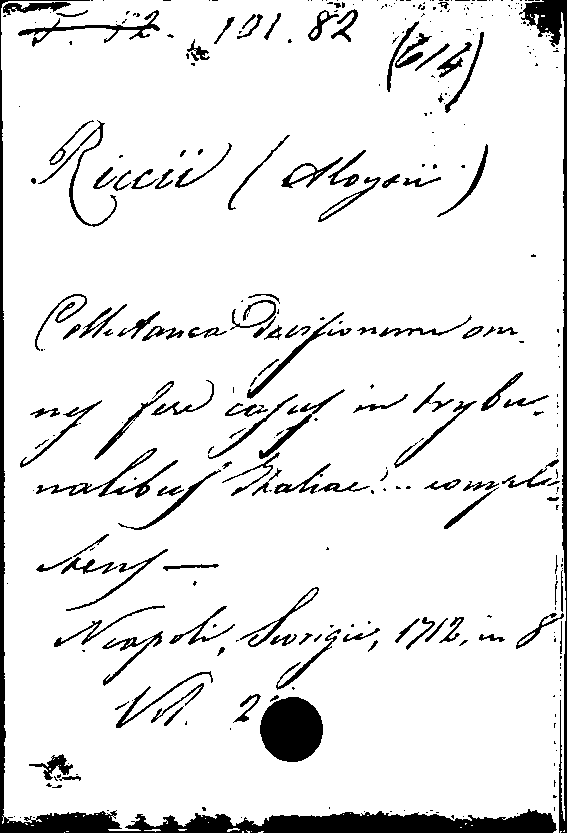 T. 12. 101.82
(614)
Riccii (Aloysii)
Collectanea Decisionum om-
nes fere casus in trybu-
nalibus Italiae... comple-
ctens —
Neapoli, 1712, in 8
Vol. 2